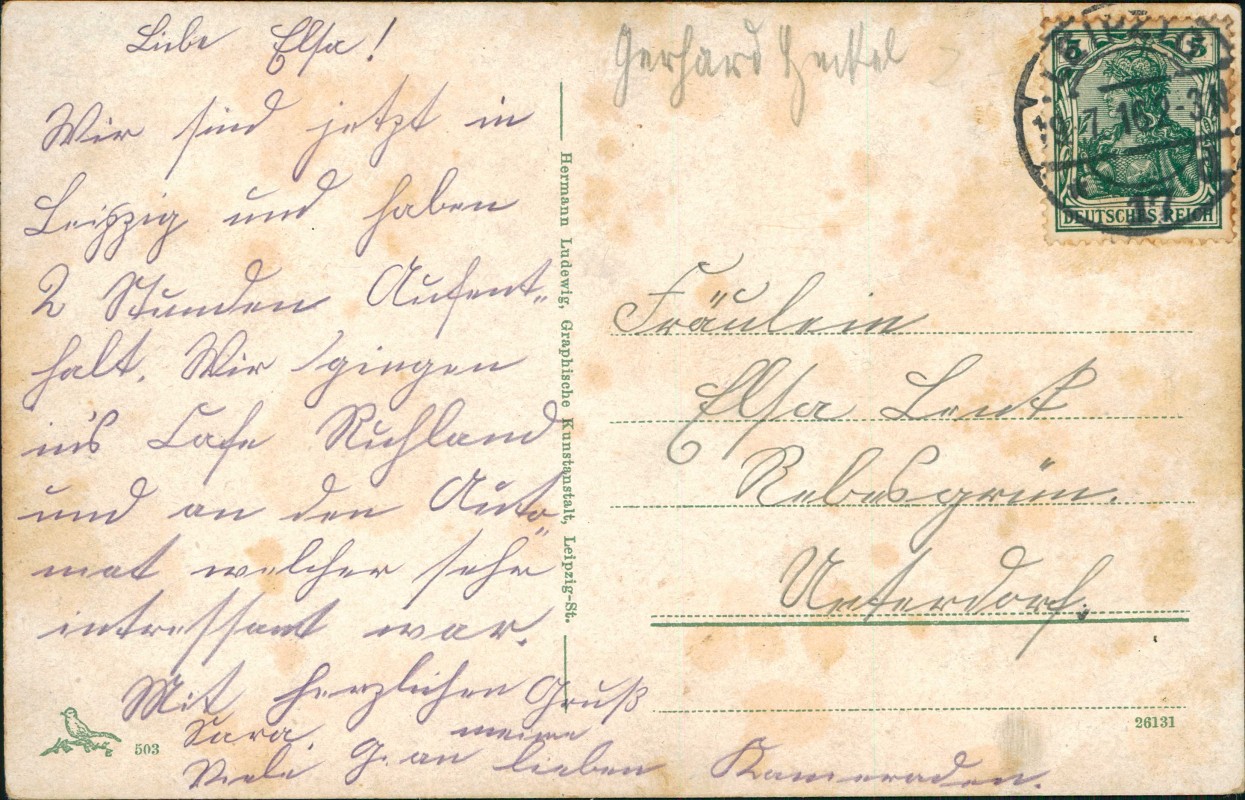 Liebe Elsa!
Wir sind jetzt in
Leipzig und haben
2 Stunden Aufent-
halt. Wir gingen
in's Cafe Ruhland
und an den Auto
mat welcher sehr
intressant war.
Mit herzlichen Gruß
Sara.
Viele G. an meine lieben Kameraden.
503
Hermann Ludewig, Graphische Kunstanstalt, Leipzig-St.
Gerhard
LEIPZIG
5 5
17
DEUTSCHES REICH
Fräulein
Elsa Lenk
Rebesgrün.
Unterdorf.
26131